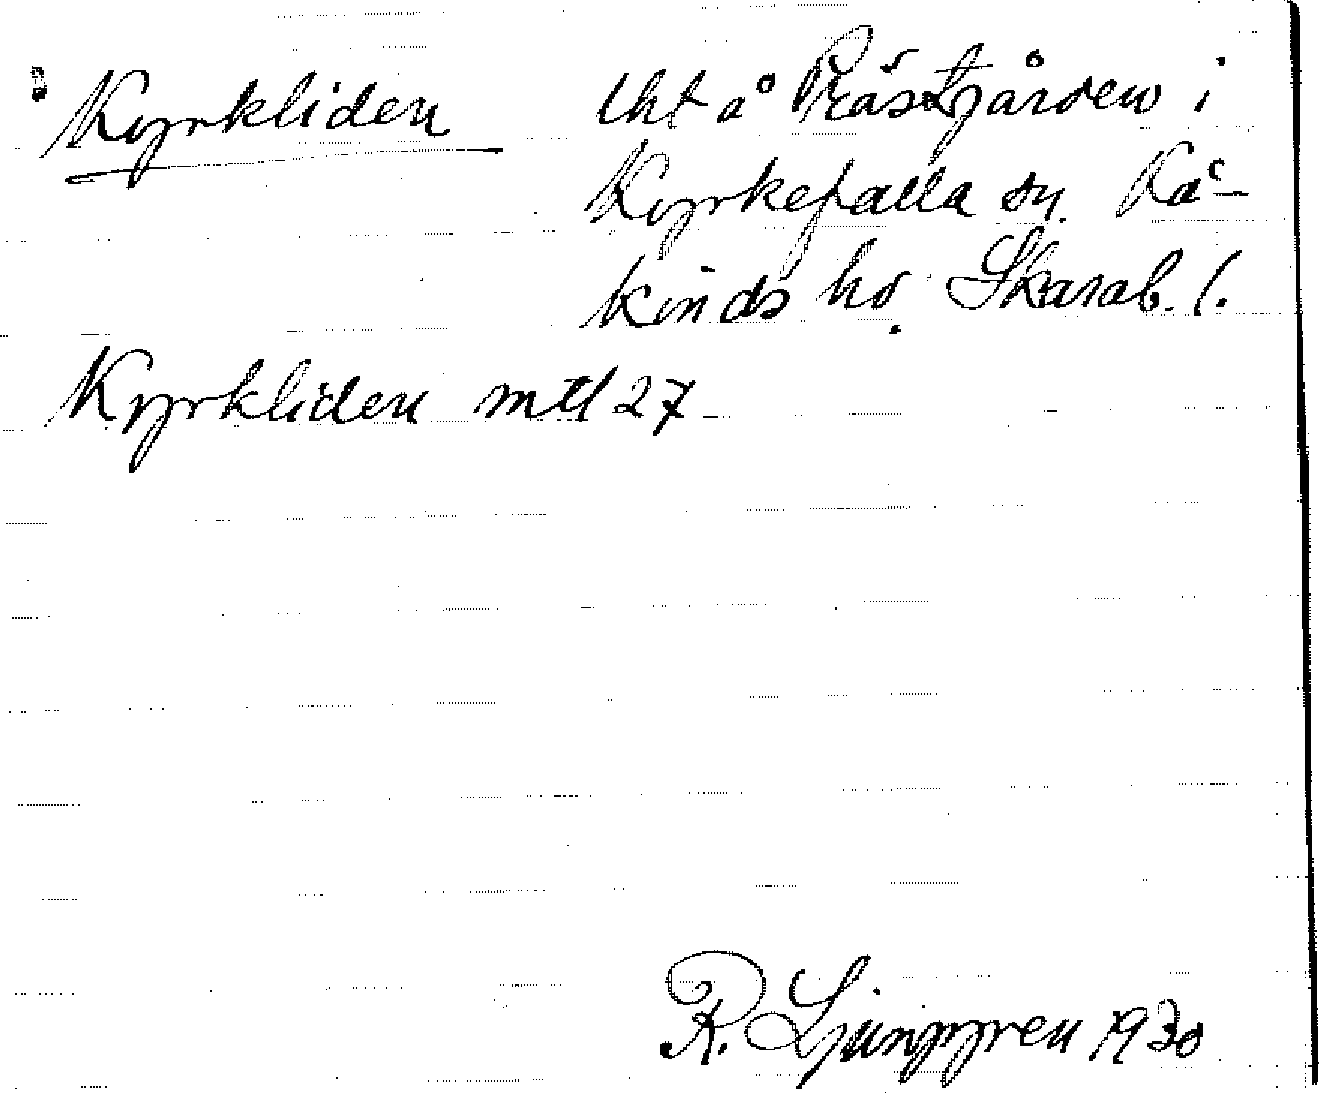 Kyrkliden lht å Prästgården i
Kyrkefalla sn. Kå-
kinds hd. Skarab. l.
Kyrkliden mtl 27
R. Ljunggren 1930